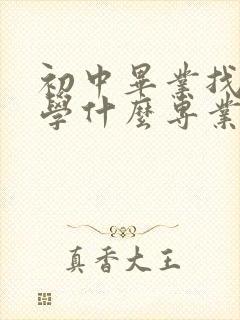 初中畢業找
學什麼專業
真香大王